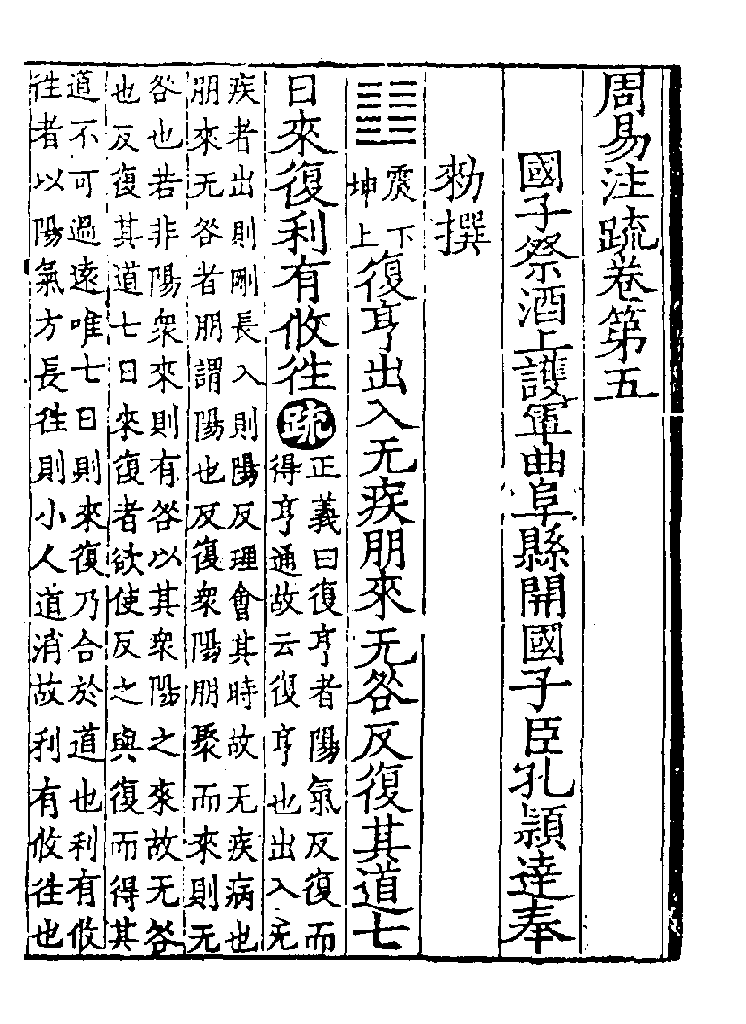 周易注䟽卷第五
國子祭酒上護軍曲阜縣開國子臣孔穎達奉
勑撰
䷗震下坤上復亨出入无疾朋來无咎反復其道七
日來復利有攸往疏正義曰復亨者陽氣反復而
得亨通故云復亨也出入无
疾者出則剛長入則陽反理會其時故无疾病也
朋來无咎者朋謂陽也反復衆陽朋聚而來則无
咎也若非陽衆來則有咎以其衆陽之來故无咎
也反復其道七日來復者欲使反之與復而得其
道不可過遠唯七日則來復乃合於道也利有攸
往者以陽氣方長往則小人道消故利有攸往也